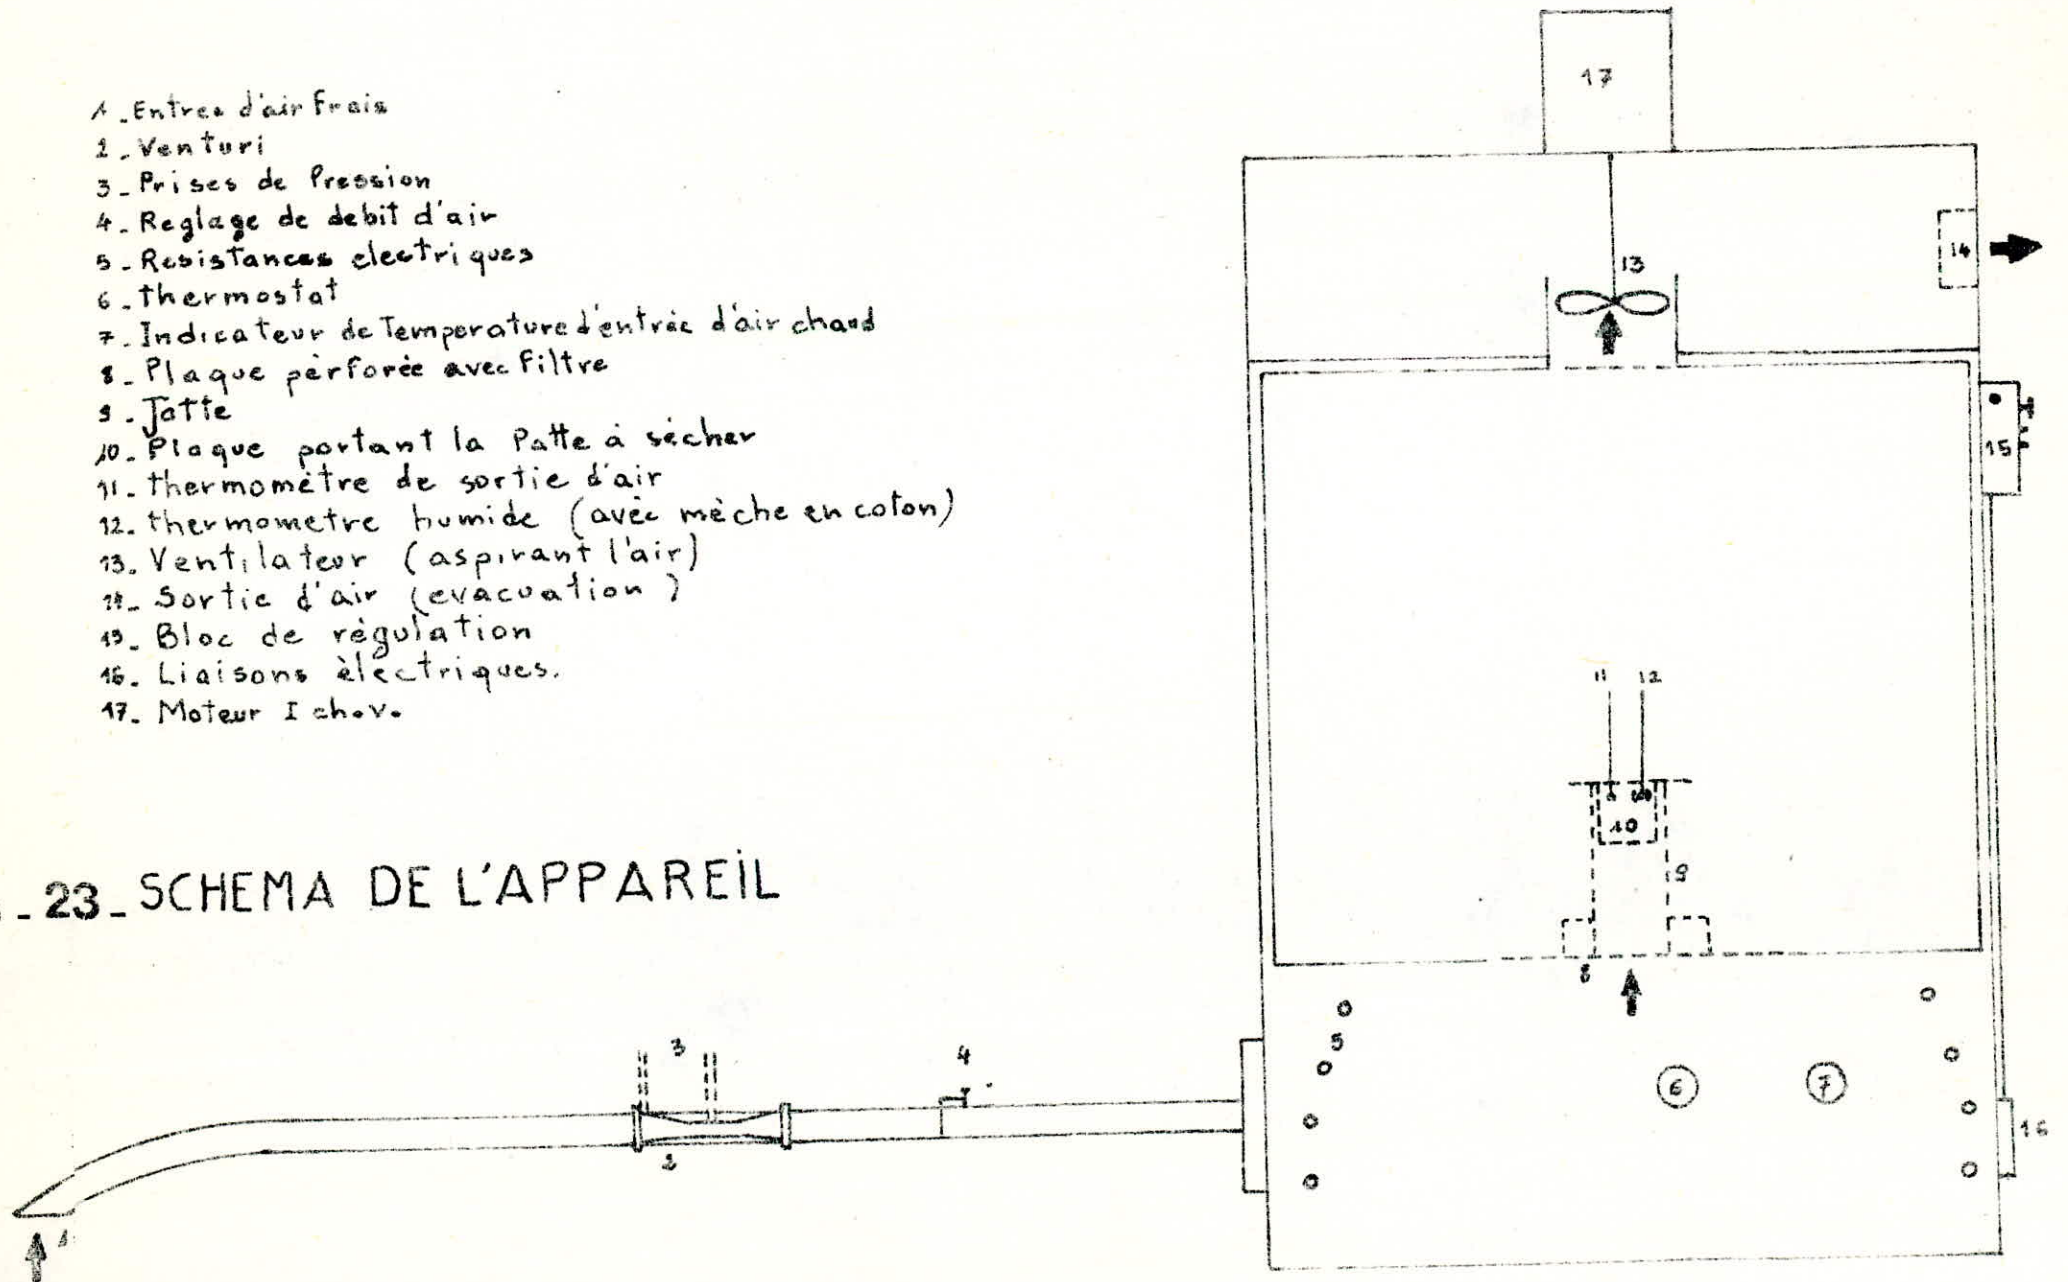 1. Entree d'air frais
2. Venturi
3- Prises de Pression
4- Reglage de debit d'air
5- Resistances electriques
6- thermostat
7. Indicateur de Temperature d'entrèe d'air chaud
8- Plaque pèrforèe avec filtre
9. Jatte
10- Plaque portant la Patte à sècher
11. thermomètre de sortie d'air
12. thermometre humide (avèc mèche en coton)
13. Ventilateur (aspirant l'air)
14- Sortie d'air (evacuation)
15- Bloc de règulation
16- Liaisons èlectriques.
17- Moteur I ch.v.
- 23- SCHEMA DE L'APPAREIL
17
13
14
15
11 12
10
9
8
5
6
7
16
3
4
2
1